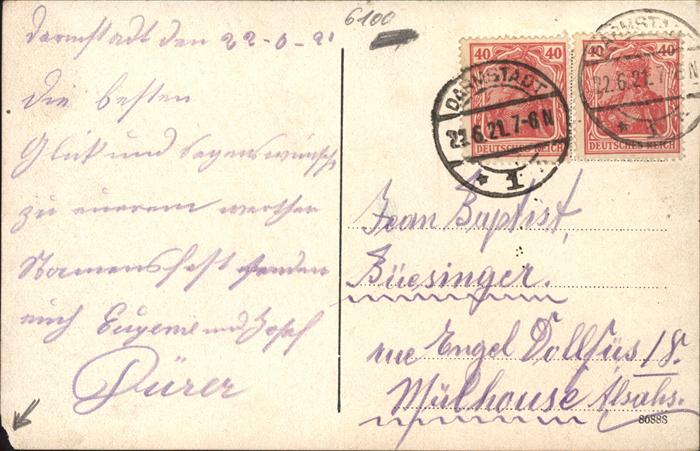 6100
Darmstadt den 22-6-21
Die besten
Glück und Segenswünsche
zu eurem werthen
Namensfest senden
euch Eugeme und Josef
Dürer
40 40
DEUTSCHES REICH DEUTSCHES REICH
DARMSTADT
22.6.21. 7-8 N
* 1
DARMSTADT
22.6.21. 7-8 N
* 1
Jean Baptist,
Büesinger.
rue Engel Dollfüs 18.
Mülhouse Alsahs.
86888